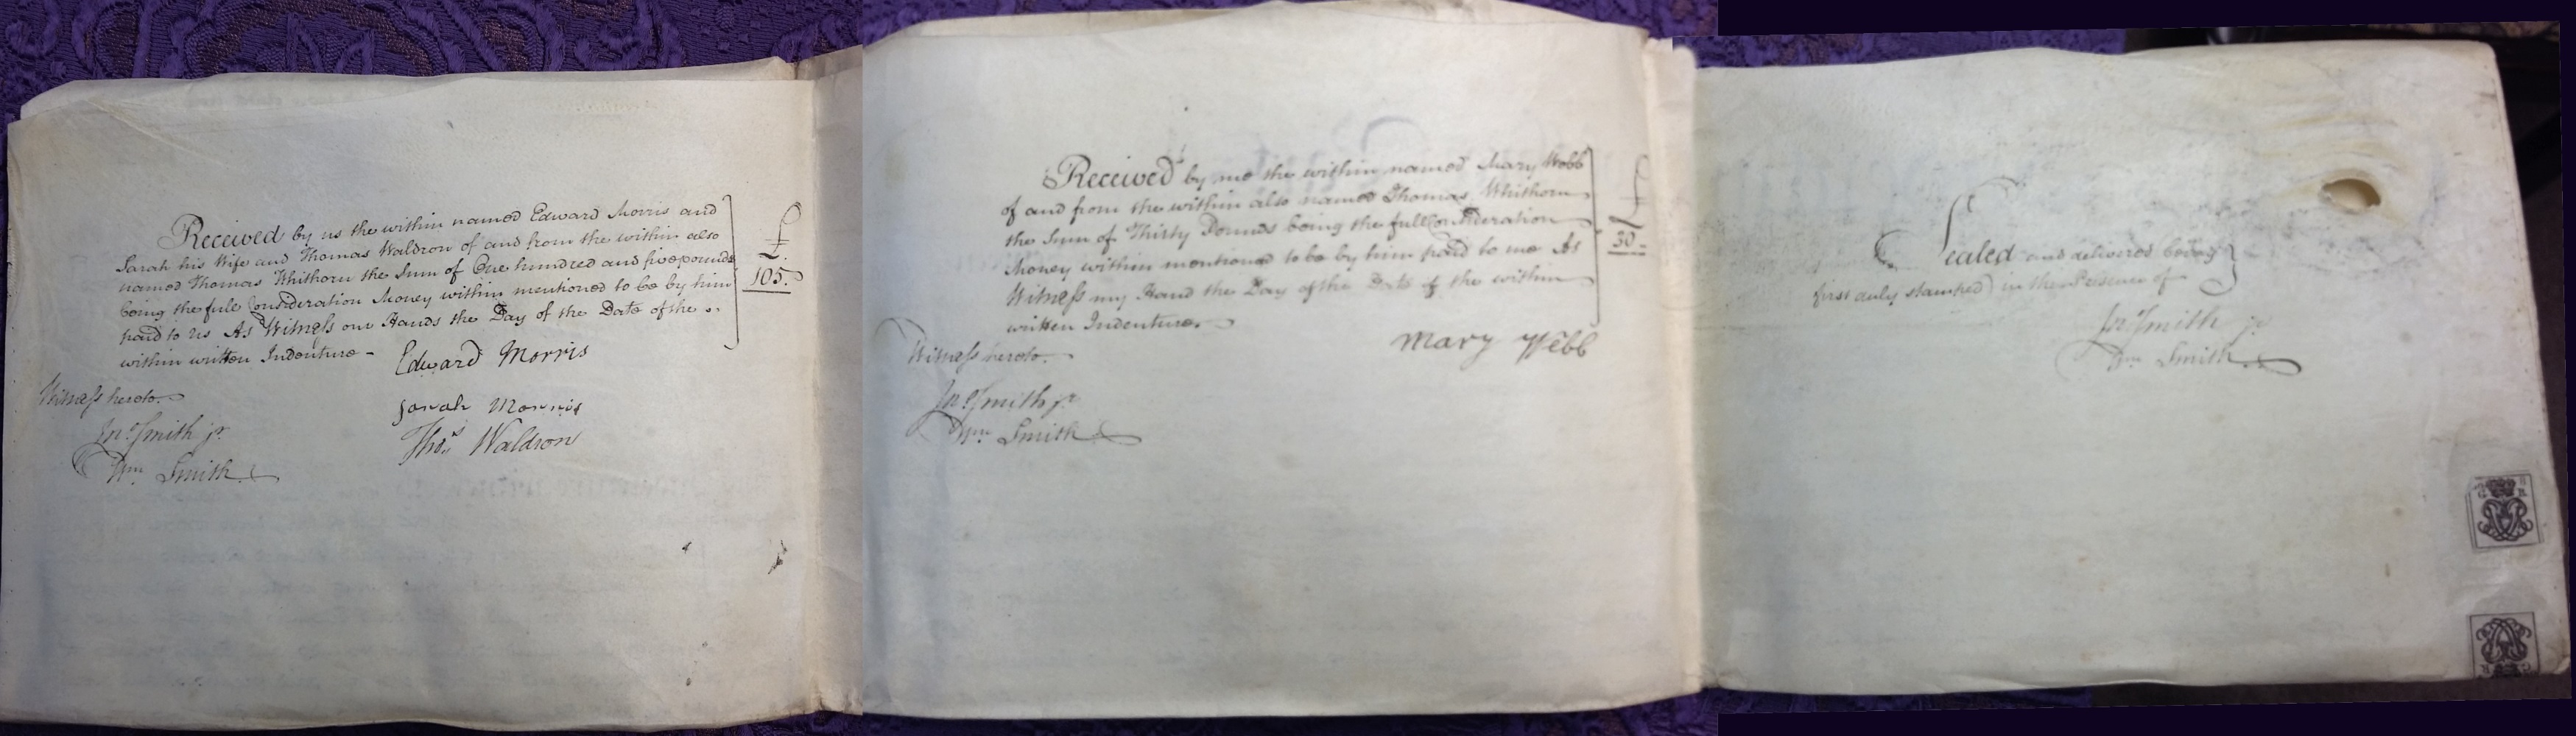 Received by us the within named Edward Morris and
Sarah his Wife and Thomas Waldron of and from the within also
named Thomas Whithorn the Sum of One hundred and five pounds
being the full Consideration Money within mentioned to be by him
paid to us As Witness our Hands the Day of the Date of the
within written Indenture -
£
105.
Edward Morris
Sarah Morris
Thos. Waldron
Witness hereto.
Jno. Smith jr.
Wm Smith
Received by me the within named Mary Webb
of and from the within also named Thomas Whithorn
the Sum of Thirty Pounds being the full Consideration
Money within mentioned to be by him paid to me As
Witness my Hand the Day of the Date of the within
written Indenture.
£
30-
Mary Webb
Witness hereto.
Jno. Smith jr
Wm Smith
Sealed and delivered being
first duly stamped) in the Presence of
Jno. Smith jr
Wm Smith
G R